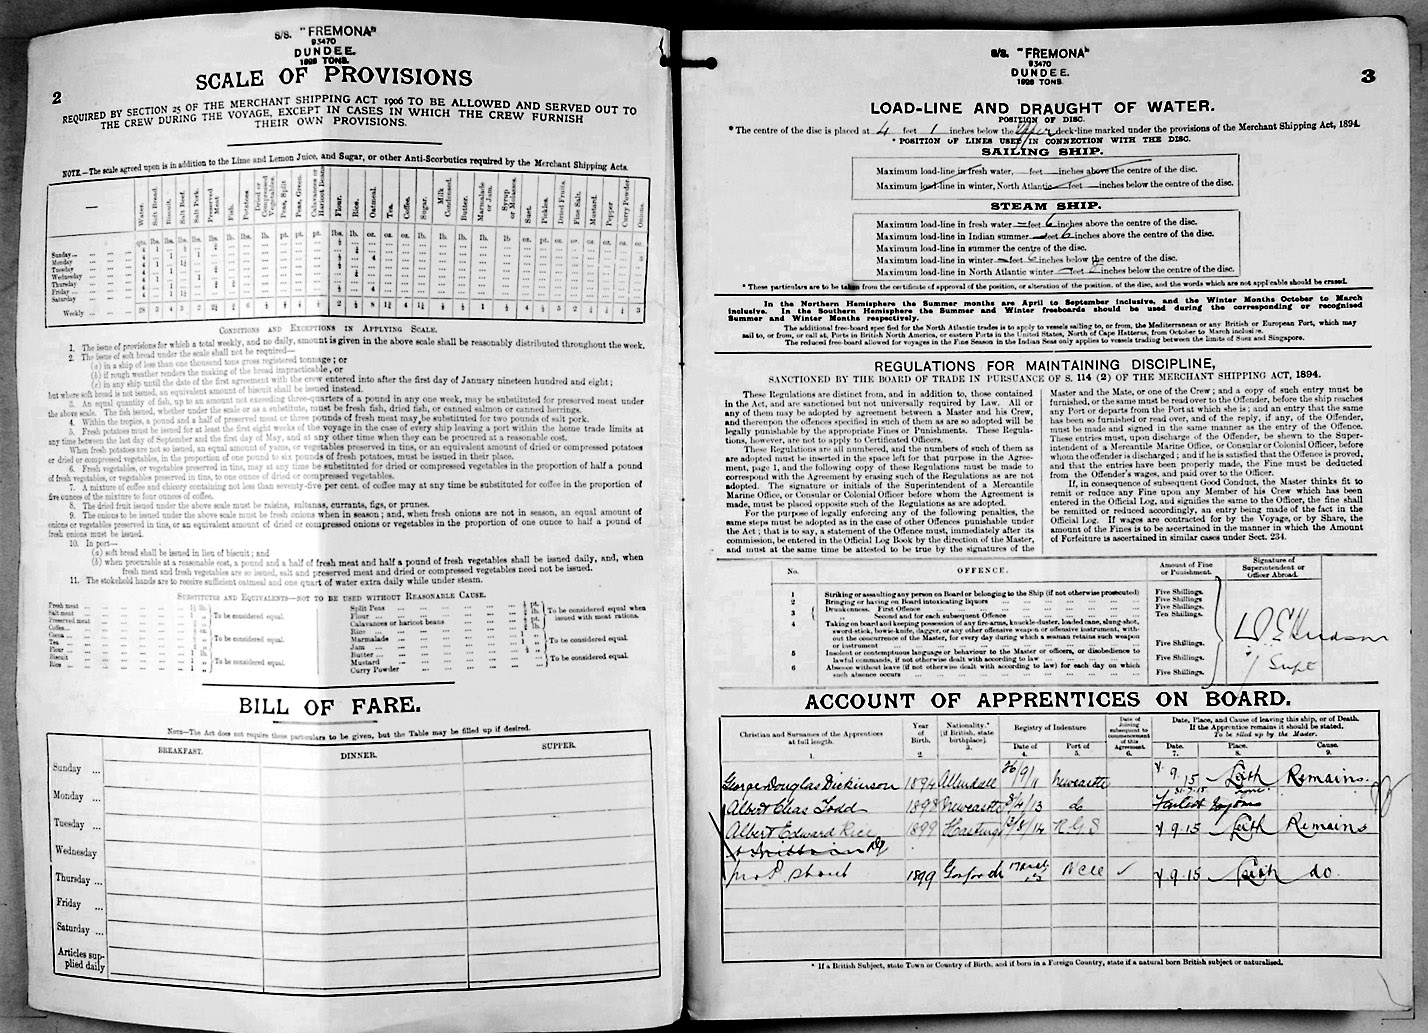 S/S. "FREMONA"
93470
DUNDEE.
TONS.
2
SCALE OF PROVISIONS
REQUIRED BY SECTION 25 OF THE MERCHANT SHIPPING ACT 1906 TO BE ALLOWED AND SERVED OUT TO
THE CREW DURING THE VOYAGE, EXCEPT IN CASES IN WHICH THE CREW FURNISH
THEIR OWN PROVISIONS.
NOTE.—The scale agreed upon is in addition to the Lime and Lemon Juice, and Sugar, or other Anti-Scorbutics required by the Merchant Shipping Acts.
Water. Soft Bread. Biscuit. Salt Beef. Salt Pork. Preserved Meat. Fish. Potatoes. Dried or Compressed Vegetables. Peas, Split Peas, Green. Calavances or Haricot Beans Flour. Rice. Oatmeal. Tea. Coffee. Sugar. Milk Condensed. Butter. Marmalade or Jam. Syrup or Molasses. Suet. Pickles. Dried Fruits. Fine Salt. Mustard. Pepper Curry Powder. Onions.
Sunday
Monday
Tuesday
Wednesday
Thursday
Friday
Saturday
Weekly
CONDITIONS AND EXCEPTIONS IN APPLYING SCALE.
1. The issue of provisions for which a total weekly, and no daily, amount is given in the above scale shall be reasonably distributed throughout the week.
2. The issue of soft bread under the scale shall not be required—
(a) in a ship of less than one thousand tons gross registered tonnage; or
(b) if rough weather renders the making of the bread impracticable, or
(c) in any ship until the date of the first agreement with the crew entered into after the first day of January nineteen hundred and eight;
but where soft bread is not issued, an equivalent amount of biscuit shall be issued instead.
3. An equal quantity of fish, up to an amount not exceeding three-quarters of a pound in any one week, may be substituted for preserved meat under
the above scale. The fish issued, whether under the scale or as a substitute, must be fresh fish, dried fish, or canned salmon or canned herrings.
4. Within the tropics, a pound and a half of preserved meat or three pounds of fresh meat may be substituted for two pounds of salt pork.
5. Fresh potatoes must be issued for at least the first eight weeks of the voyage in the case of every ship leaving a port within the home trade limits at
any time between the last day of September and the first day of May, and at any other time when they can be procured at a reasonable cost.
When fresh potatoes are not so issued, an equal amount of yams, or vegetables preserved in tins, or an equivalent amount of dried or compressed potatoes
or dried or compressed vegetables, in the proportion of one pound to six pounds of fresh potatoes, must be issued in their place.
6. Fresh vegetables, or vegetables preserved in tins, may at any time be substituted for dried or compressed vegetables in the proportion of half a pound
of fresh vegetables, or vegetables preserved in tins, to one ounce of dried or compressed vegetables.
7. A mixture of coffee and chicory containing not less than seventy-five per cent. of coffee may at any time be substituted for coffee in the proportion of
five ounces of the mixture to four ounces of coffee.
8. The dried fruit issued under the above scale must be raisins, sultanas, currants, figs, or prunes.
9. The onions to be issued under the above scale must be fresh onions when in season; and, when fresh onions are not in season, an equal amount of
onions or vegetables preserved in tins, or an equivalent amount of dried or compressed onions or vegetables in the proportion of one ounce to half a pound of
fresh onions must be issued.
10. In port—
(a) soft bread shall be issued in lieu of biscuit; and
(b) when procurable at a reasonable cost, a pound and a half of fresh meat and half a pound of fresh vegetables shall be issued daily, and, when
fresh meat and fresh vegetables are so issued, salt and preserved meat and dried or compressed vegetables need not be issued.
11. The stokehold hands are to receive sufficient oatmeal and one quart of water extra daily while under steam.
SUBSTITUTES AND EQUIVALENTS—NOT TO BE USED WITHOUT REASONABLE CAUSE.
Fresh meat
Salt meat
Preserved meat
To be considered equal.
Coffee
Cocoa
Tea
To be considered equal.
Flour
Biscuit
Rice
To be considered equal.
Split Peas
Flour
Calavances or haricot beans
Rice
To be considered equal when
issued with meat rations.
Marmalade
Jam
Butter
To be considered equal.
Mustard
Curry Powder
To be considered equal.
BILL OF FARE.
NOTE—The Act does not require these particulars to be given, but the Table may be filled up if desired.
BREAKFAST. DINNER. SUPPER.
Sunday
Monday
Tuesday
Wednesday
Thursday
Friday
Saturday
Articles supplied daily
S/S. "FREMONA"
93470
DUNDEE.
TONS.
3
LOAD-LINE AND DRAUGHT OF WATER.
POSITION OF DISC.
* The centre of the disc is placed at 4 feet 1 inches below the Upper deck-line marked under the provisions of the Merchant Shipping Act, 1894.
* POSITION OF LINES USED IN CONNECTION WITH THE DISC.
SAILING SHIP.
Maximum load-line in fresh water, feet inches above the centre of the disc.
Maximum load-line in winter, North Atlantic feet inches below the centre of the disc.
STEAM SHIP.
Maximum load-line in fresh water — feet 6 inches above the centre of the disc.
Maximum load-line in Indian summer — feet 6 inches above the centre of the disc.
Maximum load-line in summer the centre of the disc.
Maximum load-line in winter — feet 6 inches below the centre of the disc.
Maximum load-line in North Atlantic winter — feet inches below the centre of the disc.
* These particulars are to be taken from the certificate of approval of the position, or alteration of the position, of the disc, and the words which are not applicable should be erased.
In the Northern Hemisphere the Summer months are April to September inclusive, and the Winter Months October to March
inclusive. In the Southern Hemisphere the Summer and Winter freeboards should be used during the corresponding or recognised
Summer and Winter Months respectively.
The additional free-board specified for the North Atlantic trades is to apply to vessels sailing to, or from, the Mediterranean or any British or European Port, which may
sail to, or from, or call at, Ports in British North America, or Eastern Ports in the United States, North of Cape Hatteras, from October to March inclusive.
The reduced free-board allowed for voyages in the Fine Season in the Indian Seas only applies to vessels trading between the limits of Suez and Singapore.
REGULATIONS FOR MAINTAINING DISCIPLINE,
SANCTIONED BY THE BOARD OF TRADE IN PURSUANCE OF S. 114 (2) OF THE MERCHANT SHIPPING ACT, 1894.
These Regulations are distinct from, and in addition to, those contained
in the Act, and are sanctioned but not universally required by Law. All or
any of them may be adopted by agreement between a Master and his Crew,
and thereupon the offences specified in such of them as are so adopted will be
legally punishable by the appropriate Fines or Punishments. These Regulations,
however, are not to apply to Certificated Officers.
These Regulations are all numbered, and the numbers of such of them as
are adopted must be inserted in the space left for that purpose in the Agreement,
page 1, and the following copy of these Regulations must be made to
correspond with the Agreement by erasing such of the Regulations as are not
adopted. The signature or initials of the Superintendent of a Mercantile
Marine Office, or Consular or Colonial Officer before whom the Agreement is
made, must be placed opposite such of the Regulations as are adopted.
For the purpose of legally enforcing any of the following penalties, the
same steps must be adopted as in the case of other Offences punishable under
the Act; that is to say, a statement of the Offence must, immediately after its
commission, be entered in the Official Log Book by the direction of the Master,
and must at the same time be attested to be true by the signatures of the
Master and the Mate, or one of the Crew; and a copy of such entry must be
furnished, or the same must be read over to the Offender, before the ship reaches
any Port or departs from the Port at which she is; and an entry that the same
has been so furnished or read over, and of the reply, if any, of the Offender,
must be made and signed in the same manner as the entry of the Offence.
These entries must, upon discharge of the Offender, be shewn to the Superintendent
of a Mercantile Marine Office, or Consular or Colonial Officer, before
whom the offender is discharged; and if he is satisfied that the Offence is proved,
and that the entries have been properly made, the Fine must be deducted
from the Offender's wages, and paid over to the Officer.
If, in consequence of subsequent Good Conduct, the Master thinks fit to
remit or reduce any Fine upon any Member of his Crew which has been
entered in the Official Log, and signifies the same to the Officer, the fine shall
be remitted or reduced accordingly, an entry being made of the fact in the
Official Log. If wages are contracted for by the Voyage, or by Share, the
amount of the Fines is to be ascertained in the manner in which the Amount
of Forfeiture is ascertained in similar cases under Sect. 234.
No. OFFENCE. Amount of Fine or Punishment. Signature of Superintendent or Officer Abroad.
1 Striking or assaulting any person on Board or belonging to the Ship (if not otherwise prosecuted) Five Shillings.
2 Bringing or having on Board intoxicating liquors Five Shillings.
3 Drunkenness. First Offence Five Shillings.
" Second and for each subsequent Offence Ten Shillings.
4 Taking on board and keeping possession of any fire-arms, knuckle-duster, loaded cane, slung-shot,
sword-stick, bowie-knife, dagger, or any other offensive weapon or offensive instrument, without
the concurrence of the Master, for every day during which a seaman retains such weapon
or instrument Five Shillings.
5 Insolent or contemptuous language or behaviour to the Master or officers, or disobedience to
lawful commands, if not otherwise dealt with according to law Five Shillings.
6 Absence without leave (if not otherwise dealt with according to law) for each day on which
such absence occurs Five Shillings.
Hudson
Supt
ACCOUNT OF APPRENTICES ON BOARD.
Christian and Surnames of the Apprentices at full length. Year of Birth. Nationality.* [if British, state birthplace]. Registry of Indenture Date of Joining subsequent to commencement of this Agreement. Date, Place, and Cause of leaving this ship, or of Death.
If the Apprentice remains it should be stated.
To be filled up by the Master.
Date of Port of Date. Place. Cause.
1. 2 3. 4. 5. 6. 7. 8. 9.
George Douglas Dickinson 1894 Allendale 26/9/11 Newcastle 4.9.15 Leith Remains.
Albert Elias Todd 1898 Newcastle 8/4/13 do
Albert Edward Rice 1899 Hastings 3/8/14 R.G.S 4.9.15 Leith Remains
Jno P. Short 1899 Gosforth 17 N cle 4.9.15 Leith do.
* If a British Subject, state Town or Country of Birth, and if born in a Foreign Country, state if a natural born British subject or naturalised.